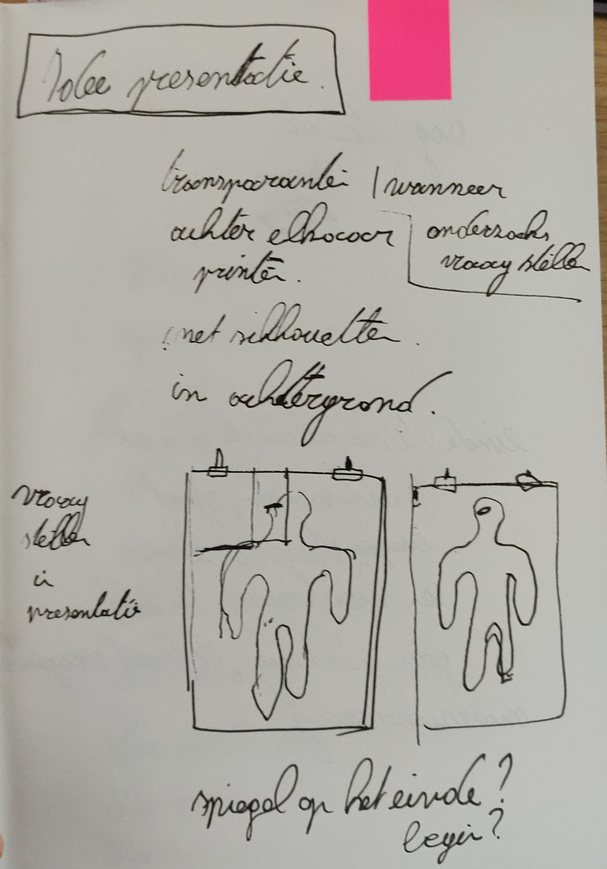 Idee presentatie.
transparanten
achter elkaar
printen.
wanneer
onderzoeks
vraag stellen
met silhouetten.
in achtergrond.
vraag
stellen
in
presentatie
spiegel op het einde?
begin?